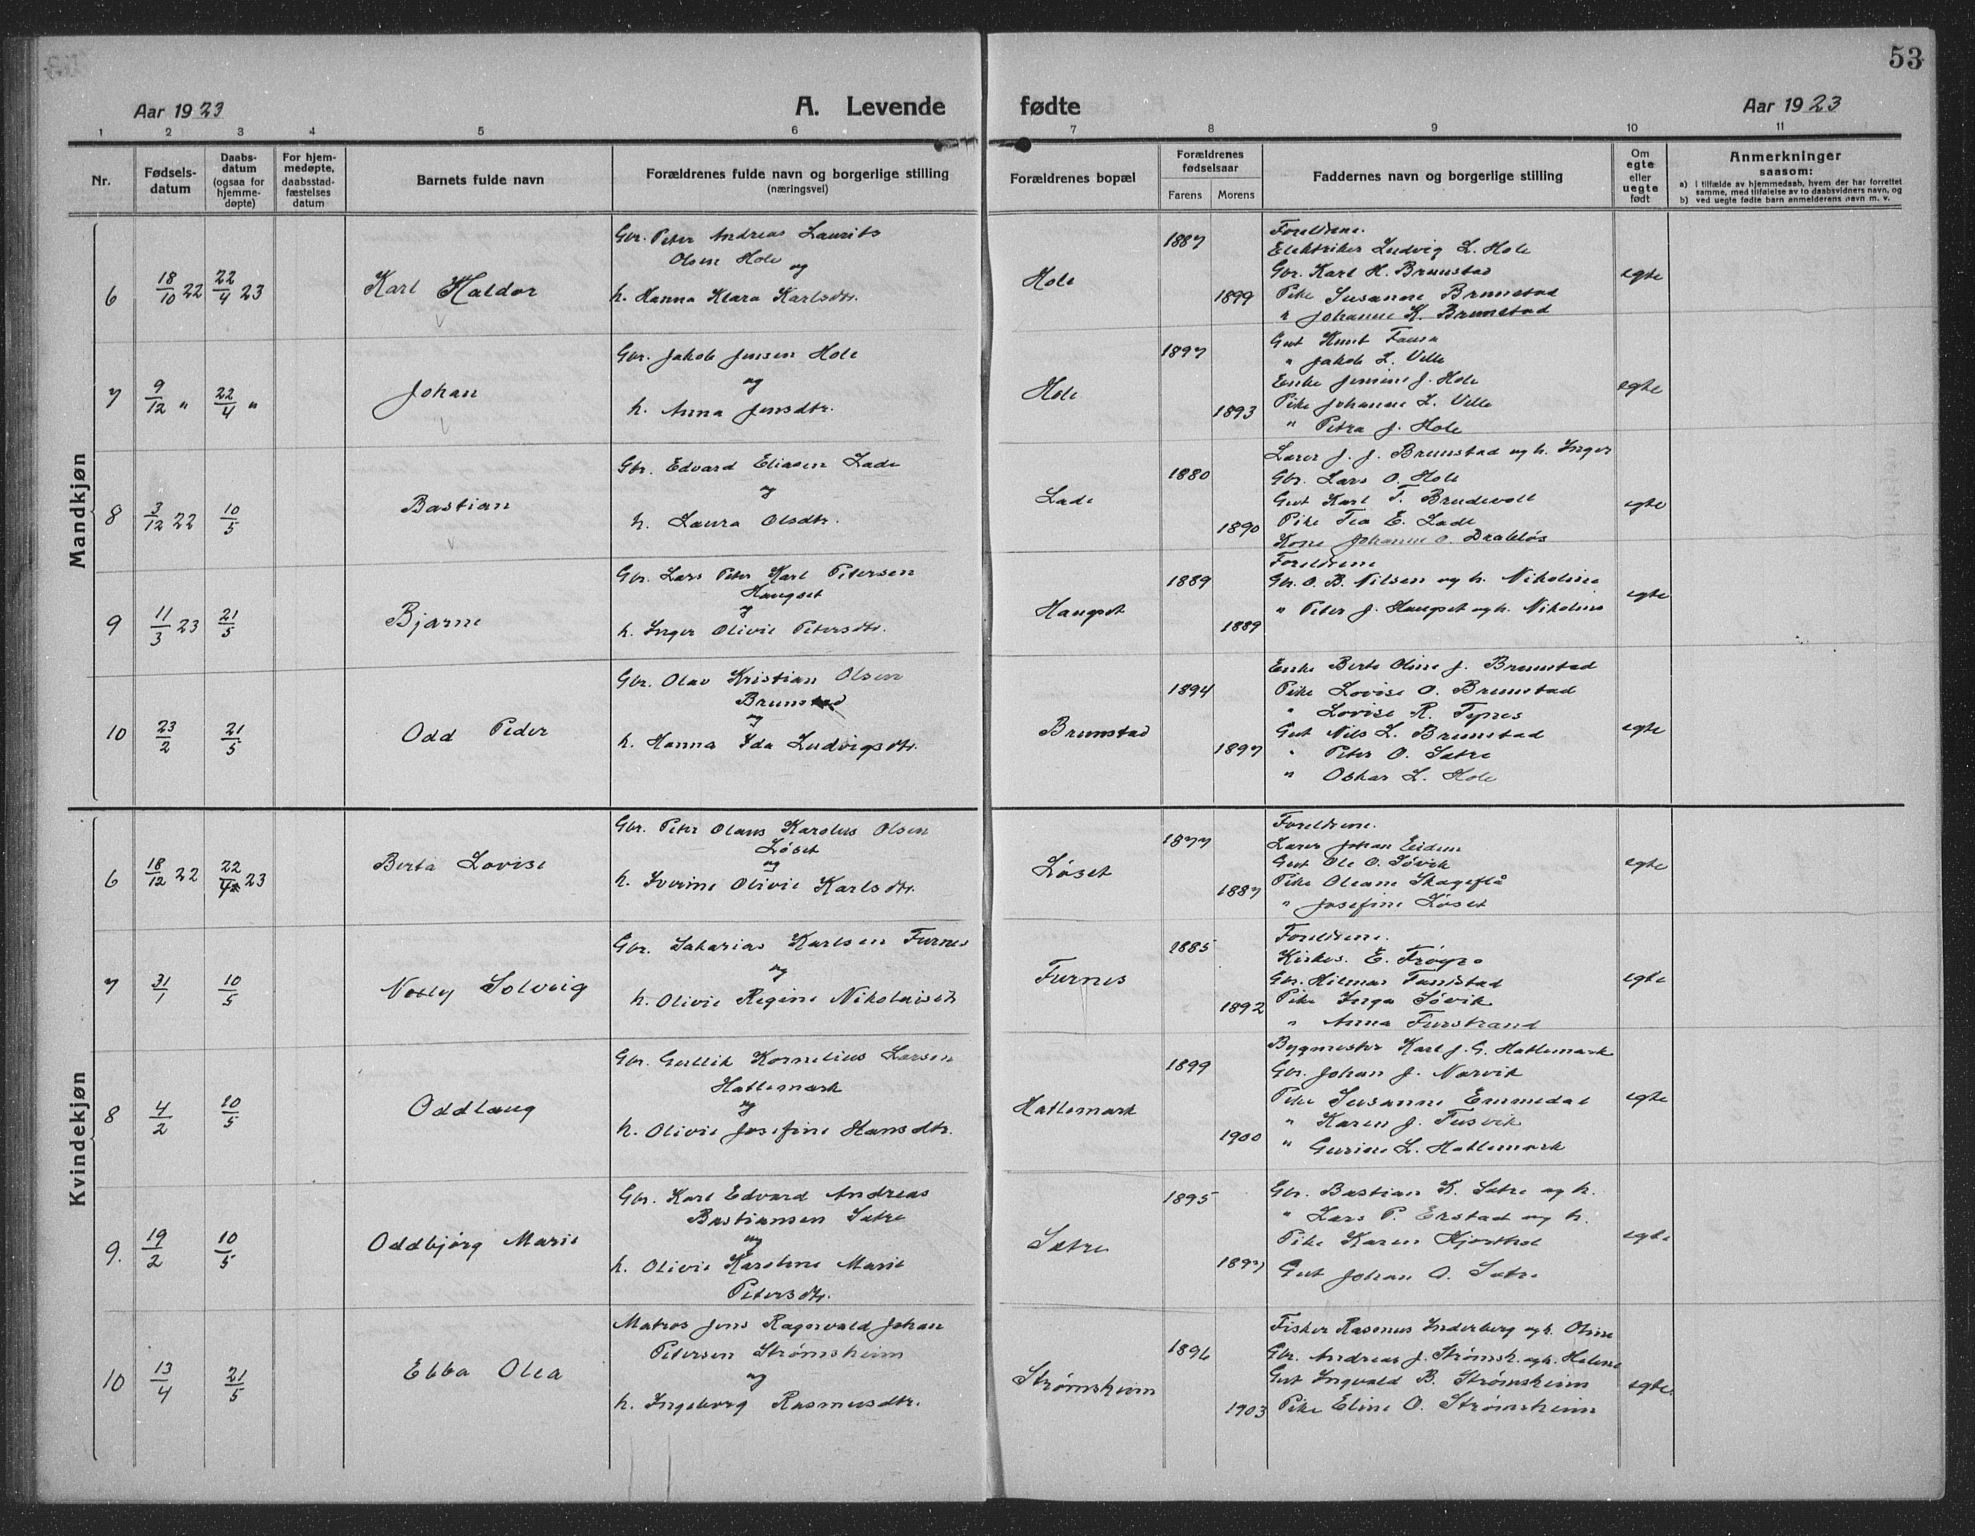 53
Aar 1923
A. Levende fødte
Aar 1923
1 2 3 4 5 6 7 8 9 10 11
Nr.
Fødsels-
datum
Daabs-
datum
(ogsaa for
hjemme-
døpte)
For hjem-
medøpte,
daabsstad-
fæstelses
datum
Barnets fulde navn
Forældrenes fulde navn og borgerlige stilling
(næringsvei)
Forældrenes bopæl
Forældrenes
fødselsaar
Farens Morens
Faddernes navn og borgerlige stilling
Om
egte
eller
uegte
født
Anmerkninger
saasom:
a) i tilfælde av hjemmedaab, hvem der har forrettet
samme, med tilføielse av to daabsvidners navn, og
b) ved uegte fødte barn anmelderens navn m. v.
Mandkjøn
6 18/10 22 22/4 23 Karl Haldor
Gbr. Peter Andreas Laurits
Olsen Hole
og
h. Hanna Klara Karlsdtr.
Hole 1887 1899
Foreldrene.
Elektriker Ludvig L. Hole
Gbr. Karl H. Brunstad
Pike Susanne Brunstad
" Johanne K. Brunstad
egte
7 9/12 " 22/4 " Johan
Gbr. Jakob Jensen Hole
og
h. Anna Jensdtr.
Hole 1897 1893
Gut Knut Fausa
" Jakob L. Velle
Enke Jensine J. Hole
Pike Johanne L. Velle
" Petra J. Hole
egte
8 3/12 22 10/5 Bastian
Gbr. Edvard Eliasen Lade
og
h. Laura Olsdtr.
Lade 1880 1890
Lærer J. J. Brunstad og h. Inger
Gbr. Lars O. Hole
Gut Karl T. Brudevoll
Pike Tea E. Lade
Kone Johanne O. Drabløs
egte
9 11/3 23 21/5 Bjarne
Gbr. Lars Peter Karl Petersen
Haugset
og
h. Inger Olivie Petersdtr.
Haugset 1889 1889
Foreldrene
Gbr. O. B. Nilsen og h. Nikoline
" Peter J. Haugset og h. Nikoline
egte
10 23/2 21/5 Odd Peder
Gbr. Olav Kristian Olsen
Brunstad
og
h. Hanna Ida Ludvigsdtr.
Brunstad 1894 1897
Enke Berte Oline J. Brunstad
Pike Lovise O. Brunstad
" Lovise R. Tynes
Gut Nils L. Brunstad
" Peter O. Sætre
" Oskar L. Hole
egte
Kvindekjøn
6 18/12 22 22/4 23 Berta Lovise
Gbr. Peter Olaus Karolus Olsen
Løset
og
h. Iverine Olivie Karlsdtr.
Løset 1877 1887
Foreldrene.
Lærer Johan Eidem
Gut Ole O. Søvik
Pike Oleane Skageflå
" Josefine Løset
egte
7 31/1 10/5 Nelly Solveig
Gbr. Sakarias Karlsen Furnes
og
h. Olivie Regine Nikolaisdtr
Furnes 1885 1892
Foreldrene.
Kirkes. E. Frøysa
Gbr. Hilmar
Pike Inga Søvik
" Anna Furstrand
egte
8 4/2 10/5 Oddlaug
Gbr. Gullik Kornelius Larsen
Hatlemark
og
h. Olivie Josefine Hansdtr.
Hatlemark 1899 1900
Bygmester Karl J. G. Hatlemark
Gbr. Johan J. Narvik
Pike Susanne Emmedal
" Karen J. Tusvik
" Gurine L. Hatlemark
egte
9. 19/2 10/5 Oddbjørg Marie
Gbr. Karl Edvard Andreas
Bastiansen Sætre
og
h. Olivie Karoline Marie
Petersdtr.
Sætre 1895 1897
Gbr. Bastian K. Sætre og h.
" Lars P. Erstad og h.
Pike Karen Hjorthol
Gut Johan O. Sætre
egte
10 13/4 21/5 Ebba Olea
Matros Jens Ragnvald Johan
Petersen Strømsheim
og
h. Ingeborg Rasmusdtr.
Strømsheim 1896 1903
Fisker Rasmus Inderberg og h. Oline
Gbr. Andreas J. Strømsh. og h. Heline
Gut Ingvald B. Strømsheim
Pike Eline O. Strømsheim
egte.